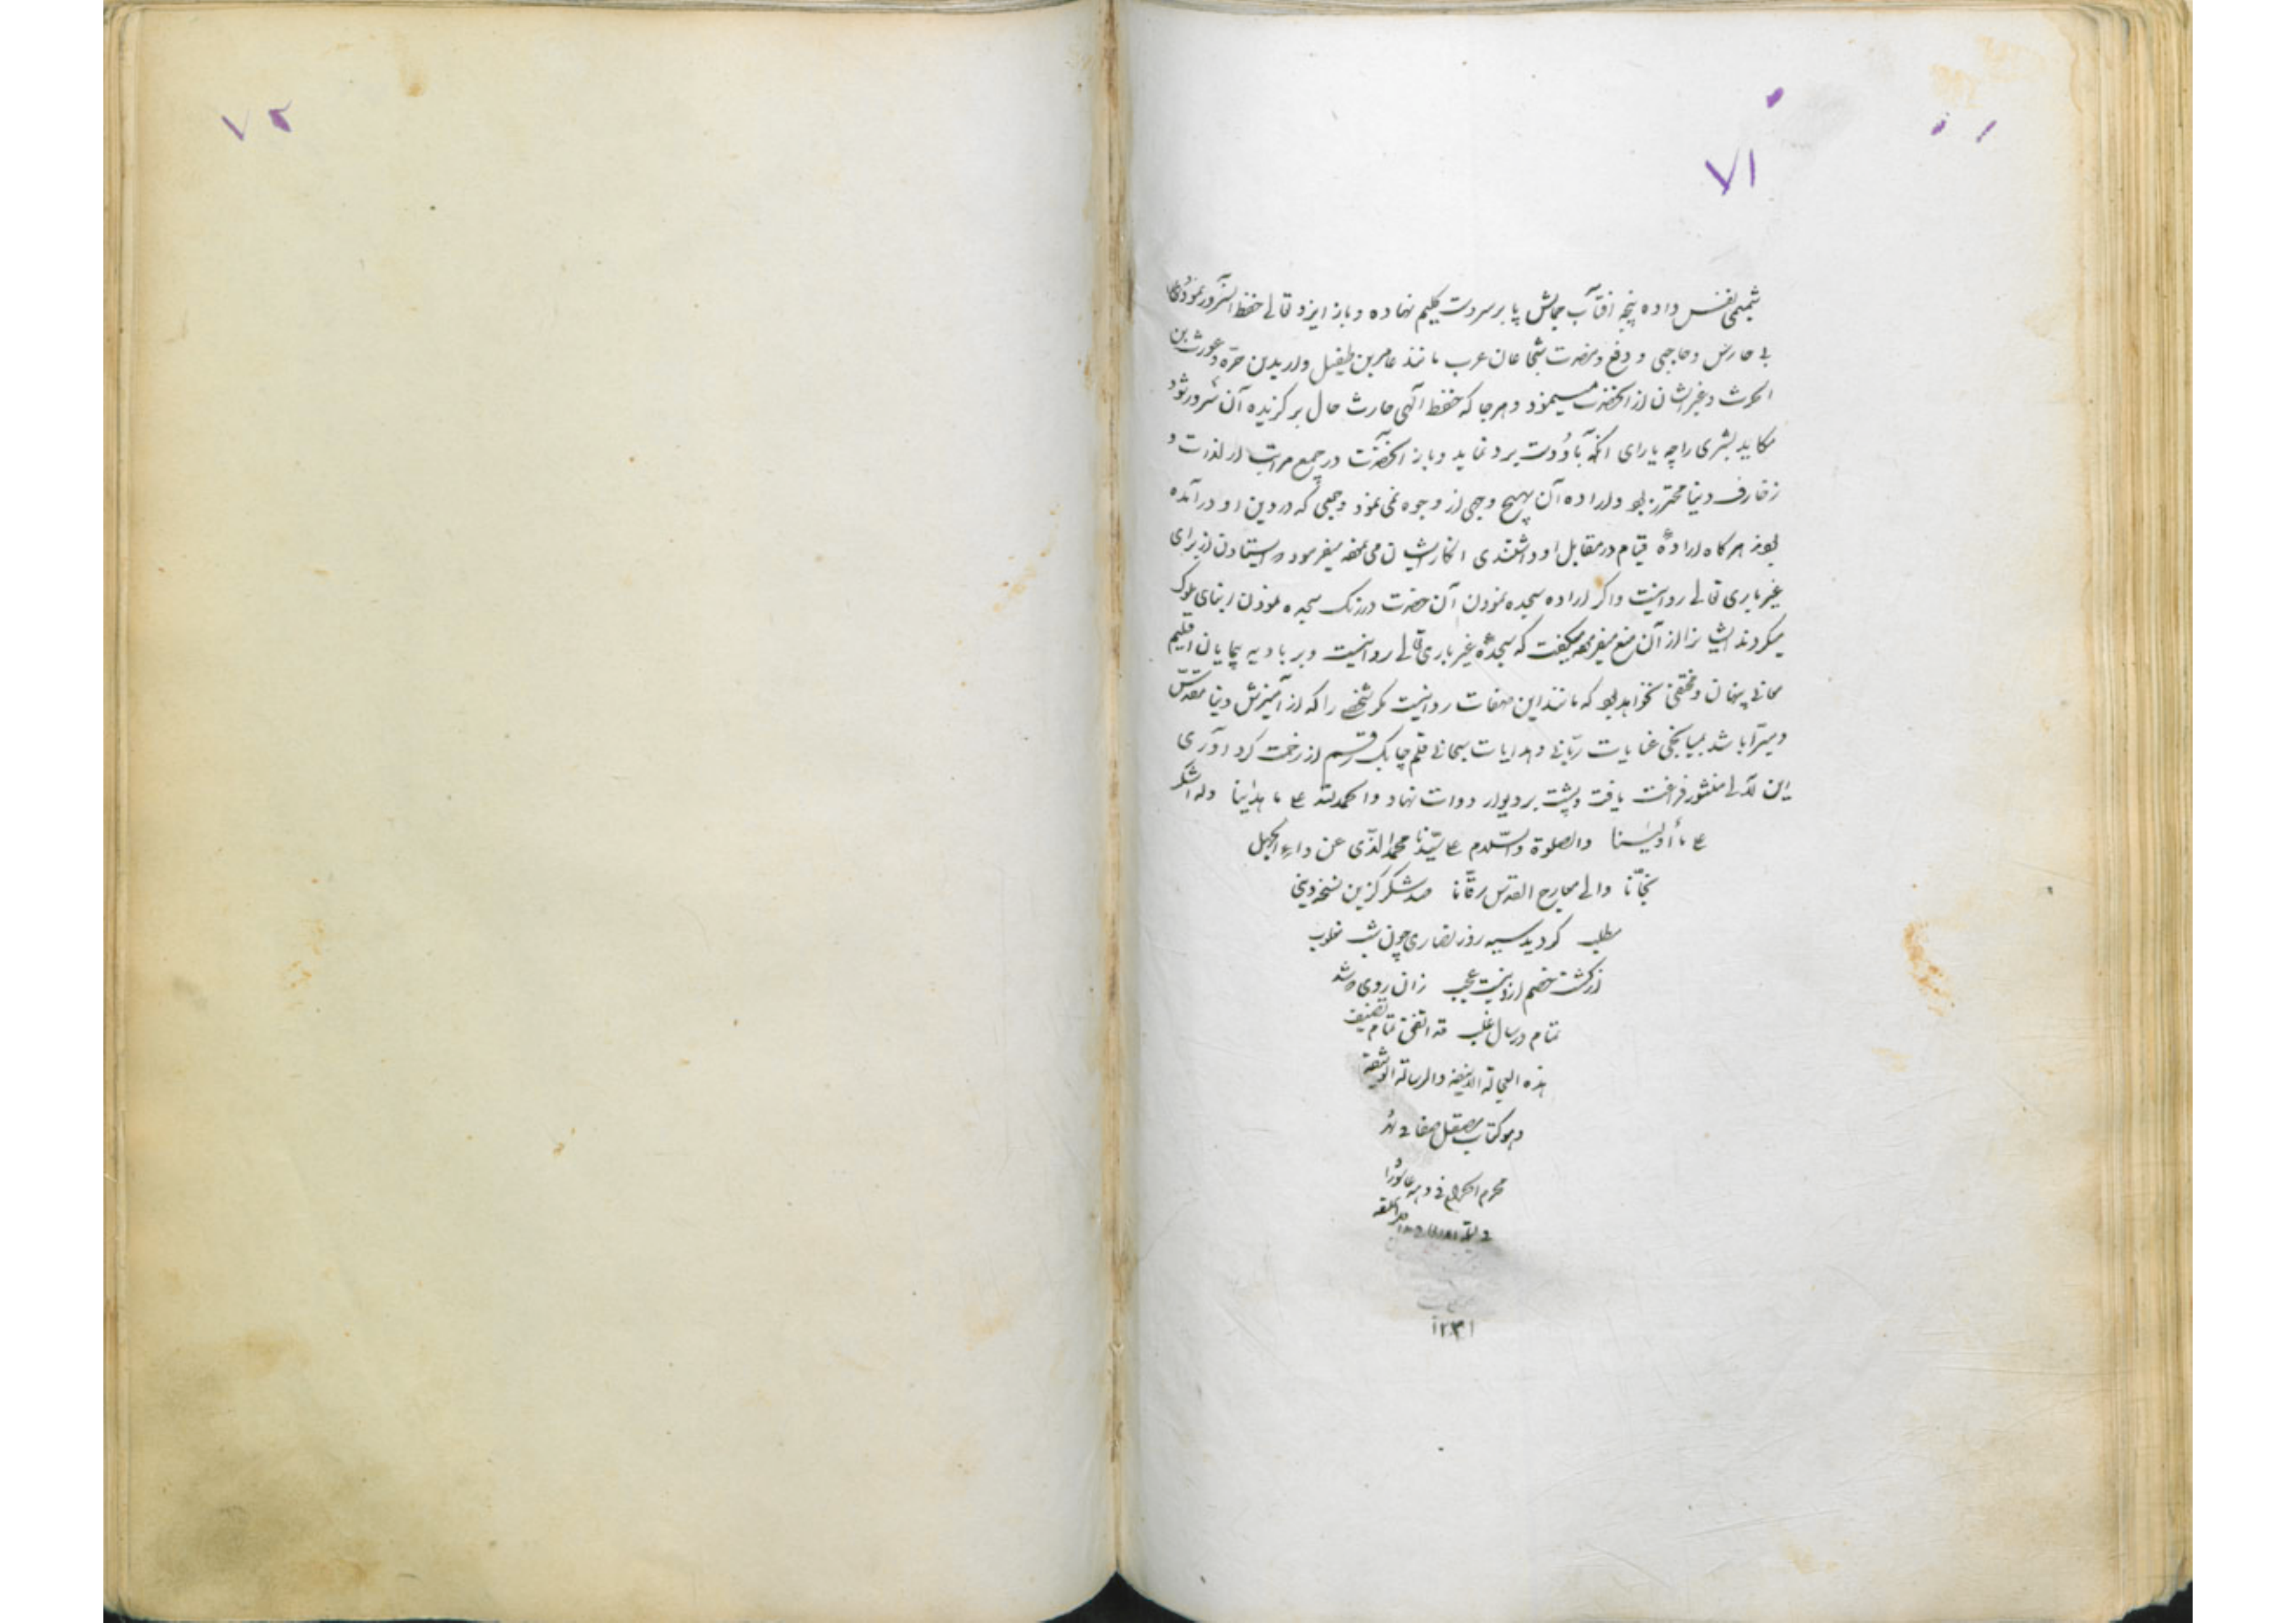 ٧١
شمیمی نفس داده پنجه افتآب جمالش پا بر سر دست کلیم نهاده و باز ایزد تعالی حفظ آنسرور نمودی
بی حارس و حاجبی و دفع و مضرت شجاعان عرب مانند عامر بن طفیل و اربد بن حره و غورث بن
الحرث و غیر ایشان از آنحضرت مینمود و هر جا که حفظ آلهی حارث حال برگزیده آن سرور شود
مکاید بشری را چه یارای آنکه باو دست برد نماید و باز آنحضرت در جمیع مراتب از لذات و
زخارف دنیا محترز بود و اراده آن بهیچ وجهی از وجوه نمی نمود و جمعی که در دین او در آمده
بودند هرگاه ارادهٔ قیام در مقابل او داشتندی انکار ایشان می نمود میفرمود ایستادن از برای
غیر باری تعالی روا نیست و اگر اراده سجده نمودن آن حضرت در رنگ سجده نمودن ابنای ملوک
میکردند ایشانرا از آن منع میفرمود میگفت که سجدهٔ غیر باری تعالی روا نیست و بر بادیه پیمایان اقلیم
معانی پنهان و مختفی نخواهد بود که مانند این صفات روا نیست مگر شخصی را که از آمیزش دنیا مقدس
و مبرّا باشد بمیانجی عنایات ربّانی و هدایات سبحانی قلم چابک رقم از زحمت گرد آوری
این لآلی منثور فراغت یافت و پشت بر دیوار دوات نهاد و الحمدلله علی ما هدانا و له الشکر
علی ما أولینا والصلوة والسّلام علی سیّدنا محمد الذّی عن داء الجهل
نجّانا والی معارج القدس رقّانا صد شکر کزین نسخه دینی
مطلب گردید سیه روز نصاری چون شب مغلوب
از گشت خصم ازو نیست عجب زان روی شد
تمام در سال غلب قد اتفق تمام تصنیف
هذه العجالة والرسالة
وهو کتاب مصقل صفا فی
محرم الحرام فی دهه عاشورا
١٢٣١
٧٢